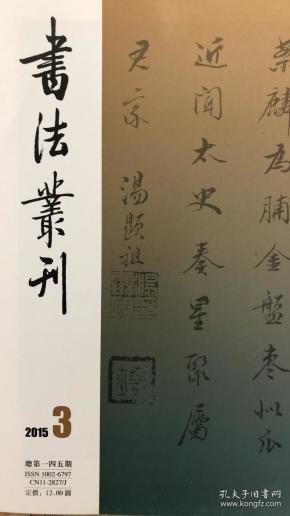 書法叢刊
2015 3
總第一四五期
ISSN 1002-6797
CN11-2827/J
定價：12.00圓
麟為脯金盤棗似瓜
近聞太史奏星聚屬
尹家 湯顯祖
孔夫子旧书网